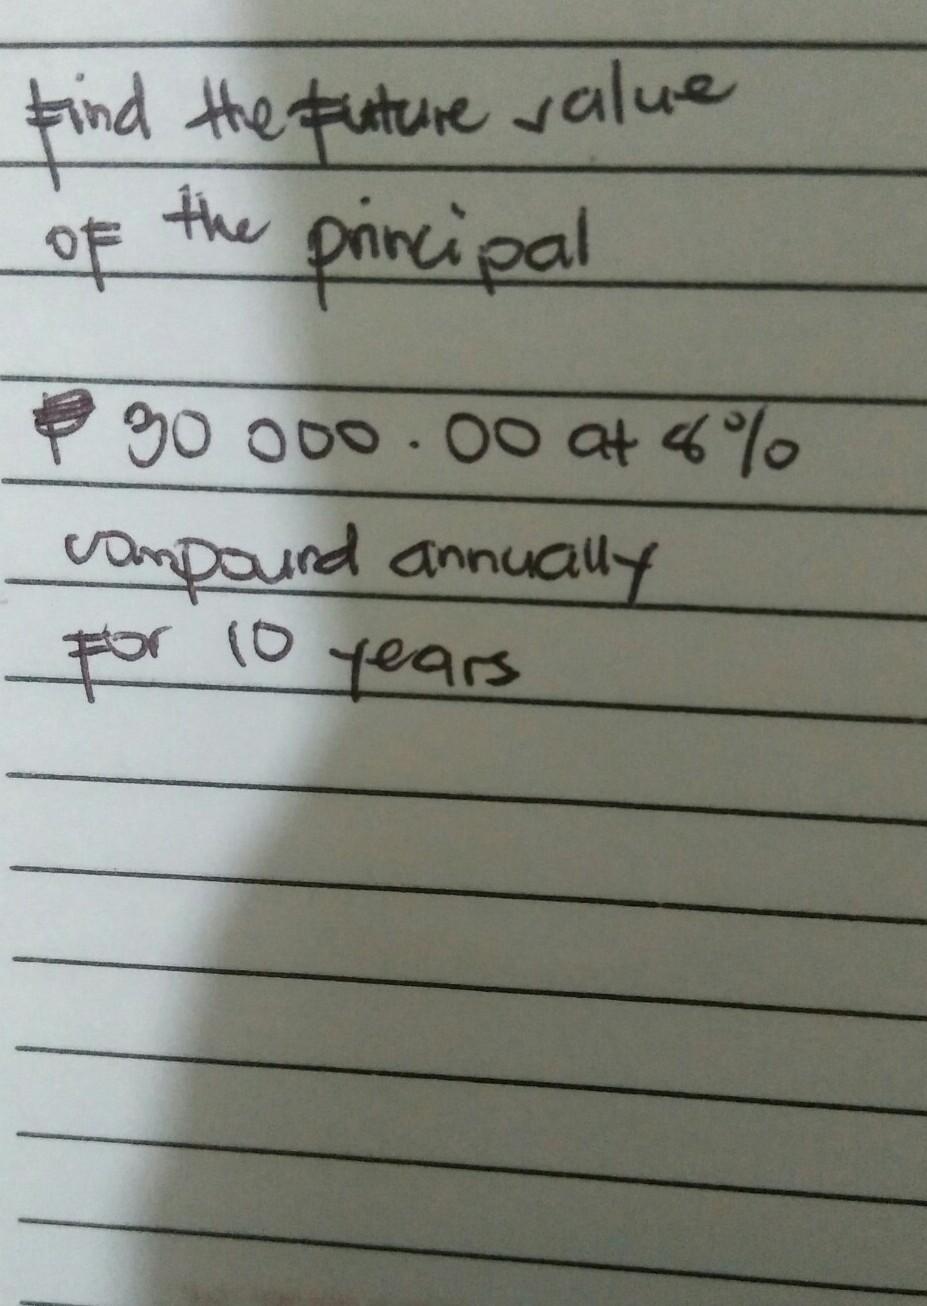 Find the future value
of the principal
₱ 30 000.00 at 8%
compound annually
for 10 years